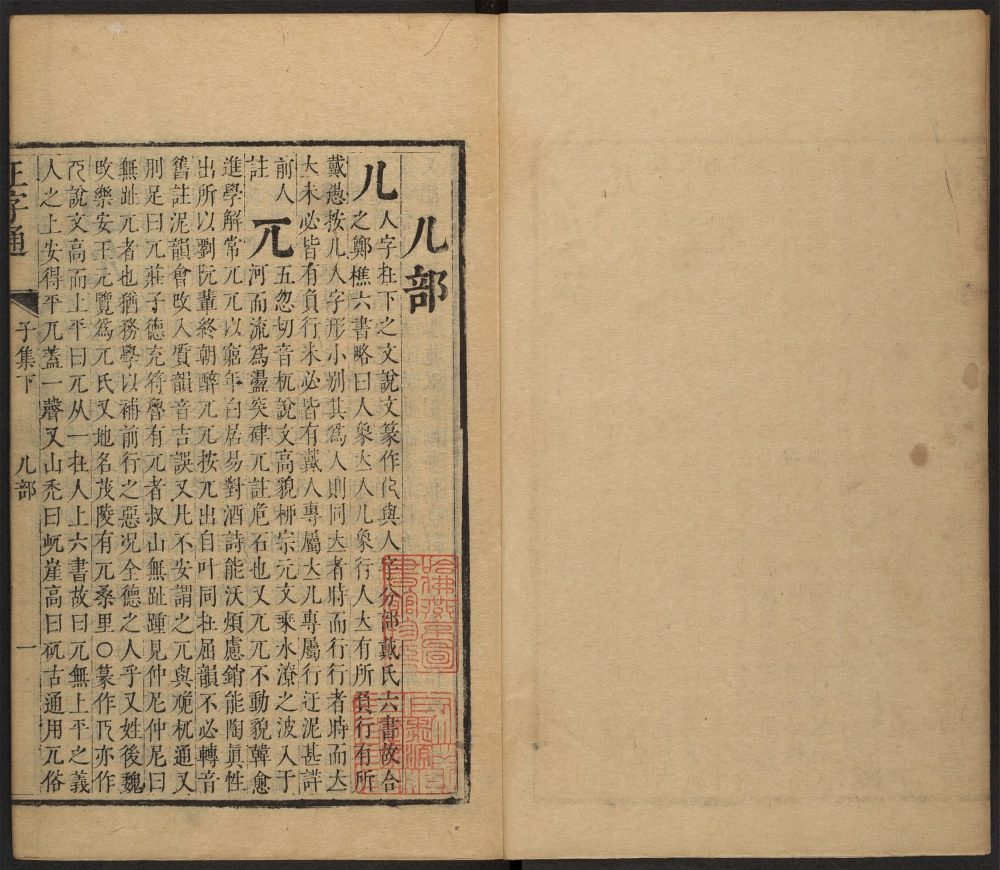 儿部
儿人字在下之文說文篆作𠒆與人字分部戴氏六書故合
之鄭樵六書略曰人象大人儿象行人大有所負行有所
戴愚按儿人字形小別其爲人則同大者時而行行者時而大
大未必皆有負行未必皆有戴人專屬大儿專屬行迂泥甚詳
前人
註
兀五忽切音杌說文高貌栁宗元文乘水潦之波入于
河而流爲盪突硉兀註危石也又兀兀不動貌韓愈
進學解常兀兀以窮年白居易對酒詩能沃煩慮銷能陶眞性
出所以劉阮輩終朝醉兀兀按兀出自叶同在屈韻不必轉音
舊註泥韻會攺入質韻音吉誤又凡不安謂之兀與卼杌通又
刖足曰兀莊子德充符魯有兀者叔山無趾踵見仲尼仲尼曰
無趾兀者也猶務學以補前行之惡况全德之人乎又姓後魏
攺樂安王元覽爲兀氏又地名茂陵有兀桑里○篆作亦作
說文高而上平曰兀从一在人上六書故曰兀無上平之義
人之上安得平兀蓋一聲又山禿曰屼崖高曰矹古通用兀俗
正字通
子集下
儿部
一